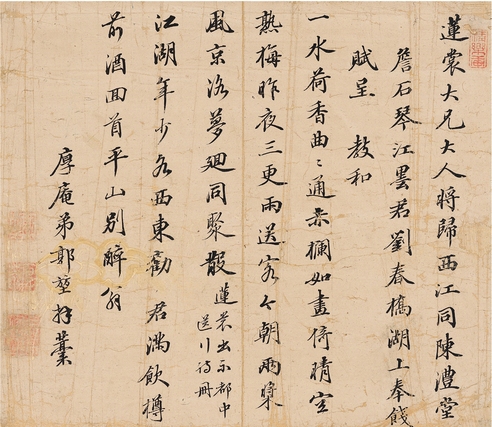 蓮裳大兄大人將歸西江同陳澧堂
詹石琴江曇君劉春橋湖上奉餞
賦呈 教和
一水荷香曲〻通朱欄如畫倚晴空
熟梅昨夜三更雨送客今朝兩槳
風京洛夢迴同聚散蓮裳出示都中送行詩冊
江湖年少各西東勸 君滿飲樽
前酒回首平山別醉翁
厚庵弟郭堃拜藁